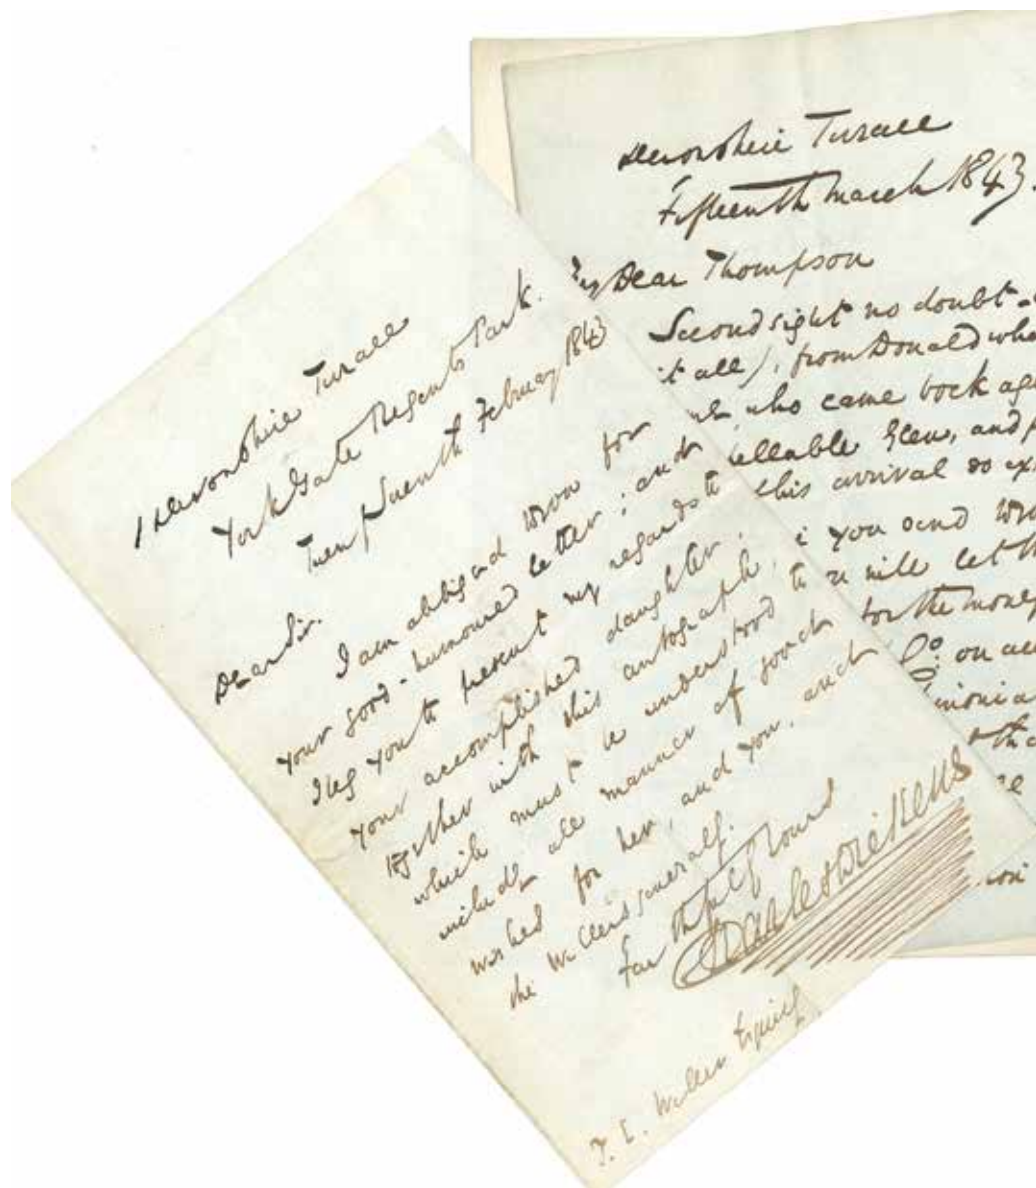 1 Devonshire Terrace
York Gate Regents Park.
Twenty Seventh February 1843
Dear Sir.
I am obliged to you for
your good-humoured letter; and
I beg you to present my regards to
your accomplished daughter,
together with this autograph,
which must be understood to
include all manner of good
wishes for her, and you, and
the Wellers generally.
Faithfully Yours
Charles Dickens
T. E. Weller Esquire
Devonshire Terrace
Fifteenth March 1843.
My Dear Thompson
Second sight no doubt -
it all), from Donald who
who came back aga
ellable Glen, and p
this arrival so ex
you and
will let th
for the money
Co: on acc